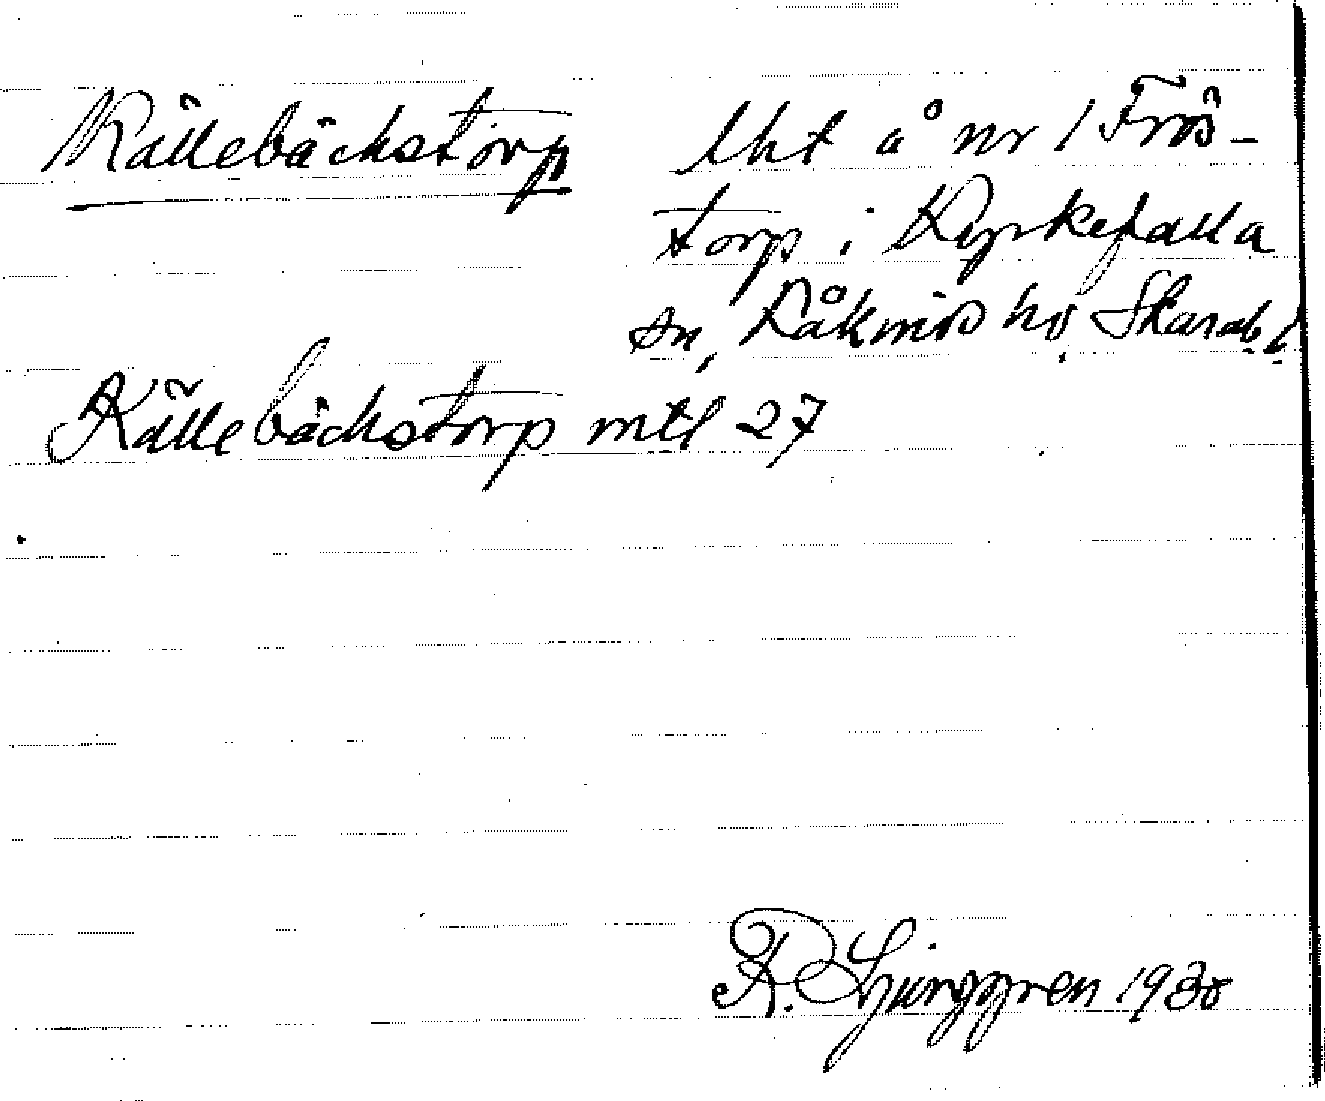 Källebäckstorp lht å nr 1 Frös-
torp i Kyrkefalla
sn, Kåkinds hd Skarab. l.
Källebäckstorp mtl 27
R. Ljunggren 1930